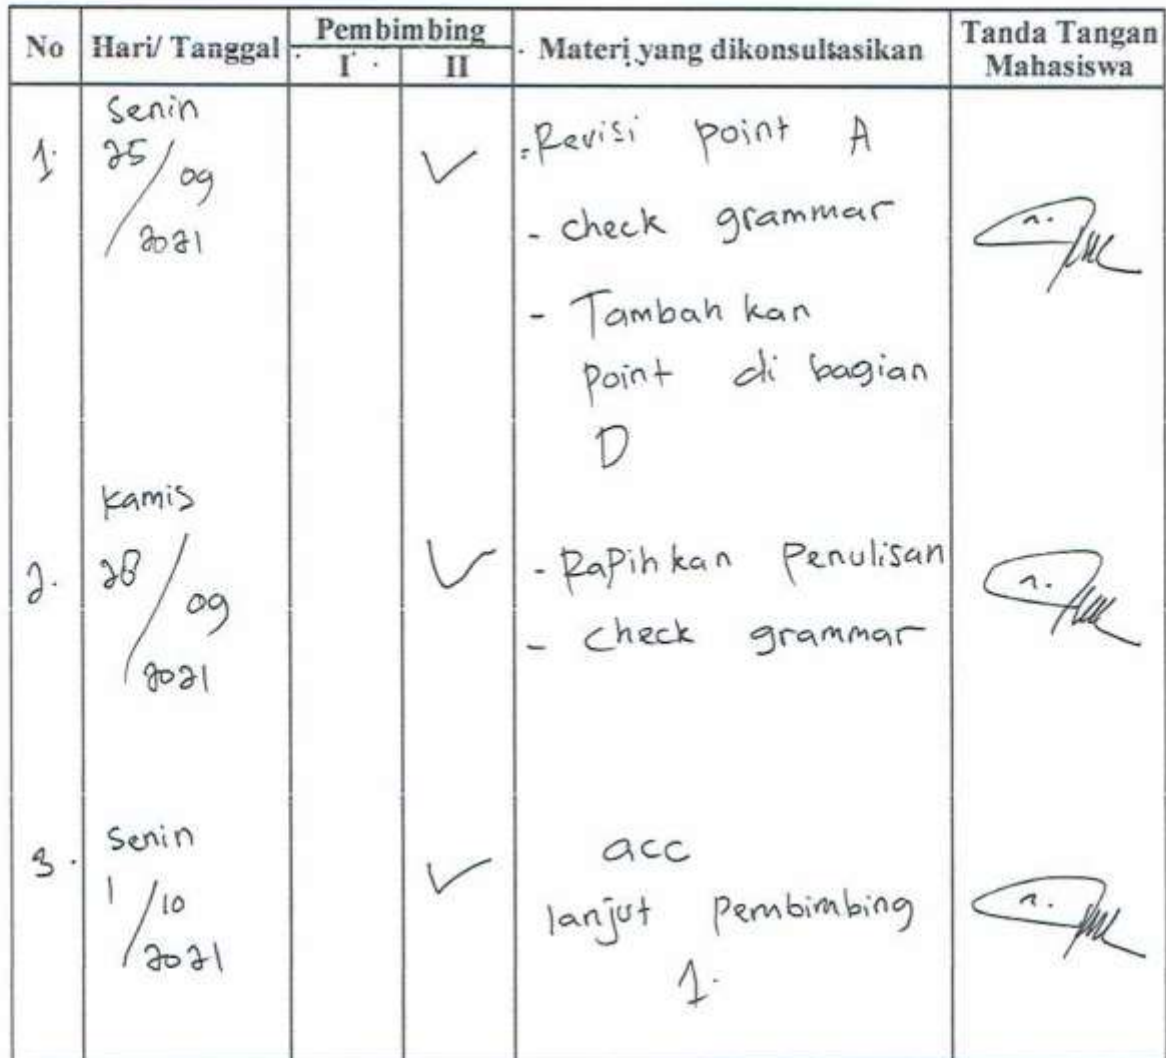 No Hari/ Tanggal Pembimbing Materi yang dikonsultasikan Tanda Tangan Mahasiswa
I II
1. Senin 25/09/2021 ✓ - Revisi point A
- check grammar
- Tambah kan
point di bagian
D
2. Kamis 28/09/2021 ✓ - Rapihkan Penulisan
- check grammar
3. Senin 1/10/2021 ✓ acc
lanjut pembimbing
1.